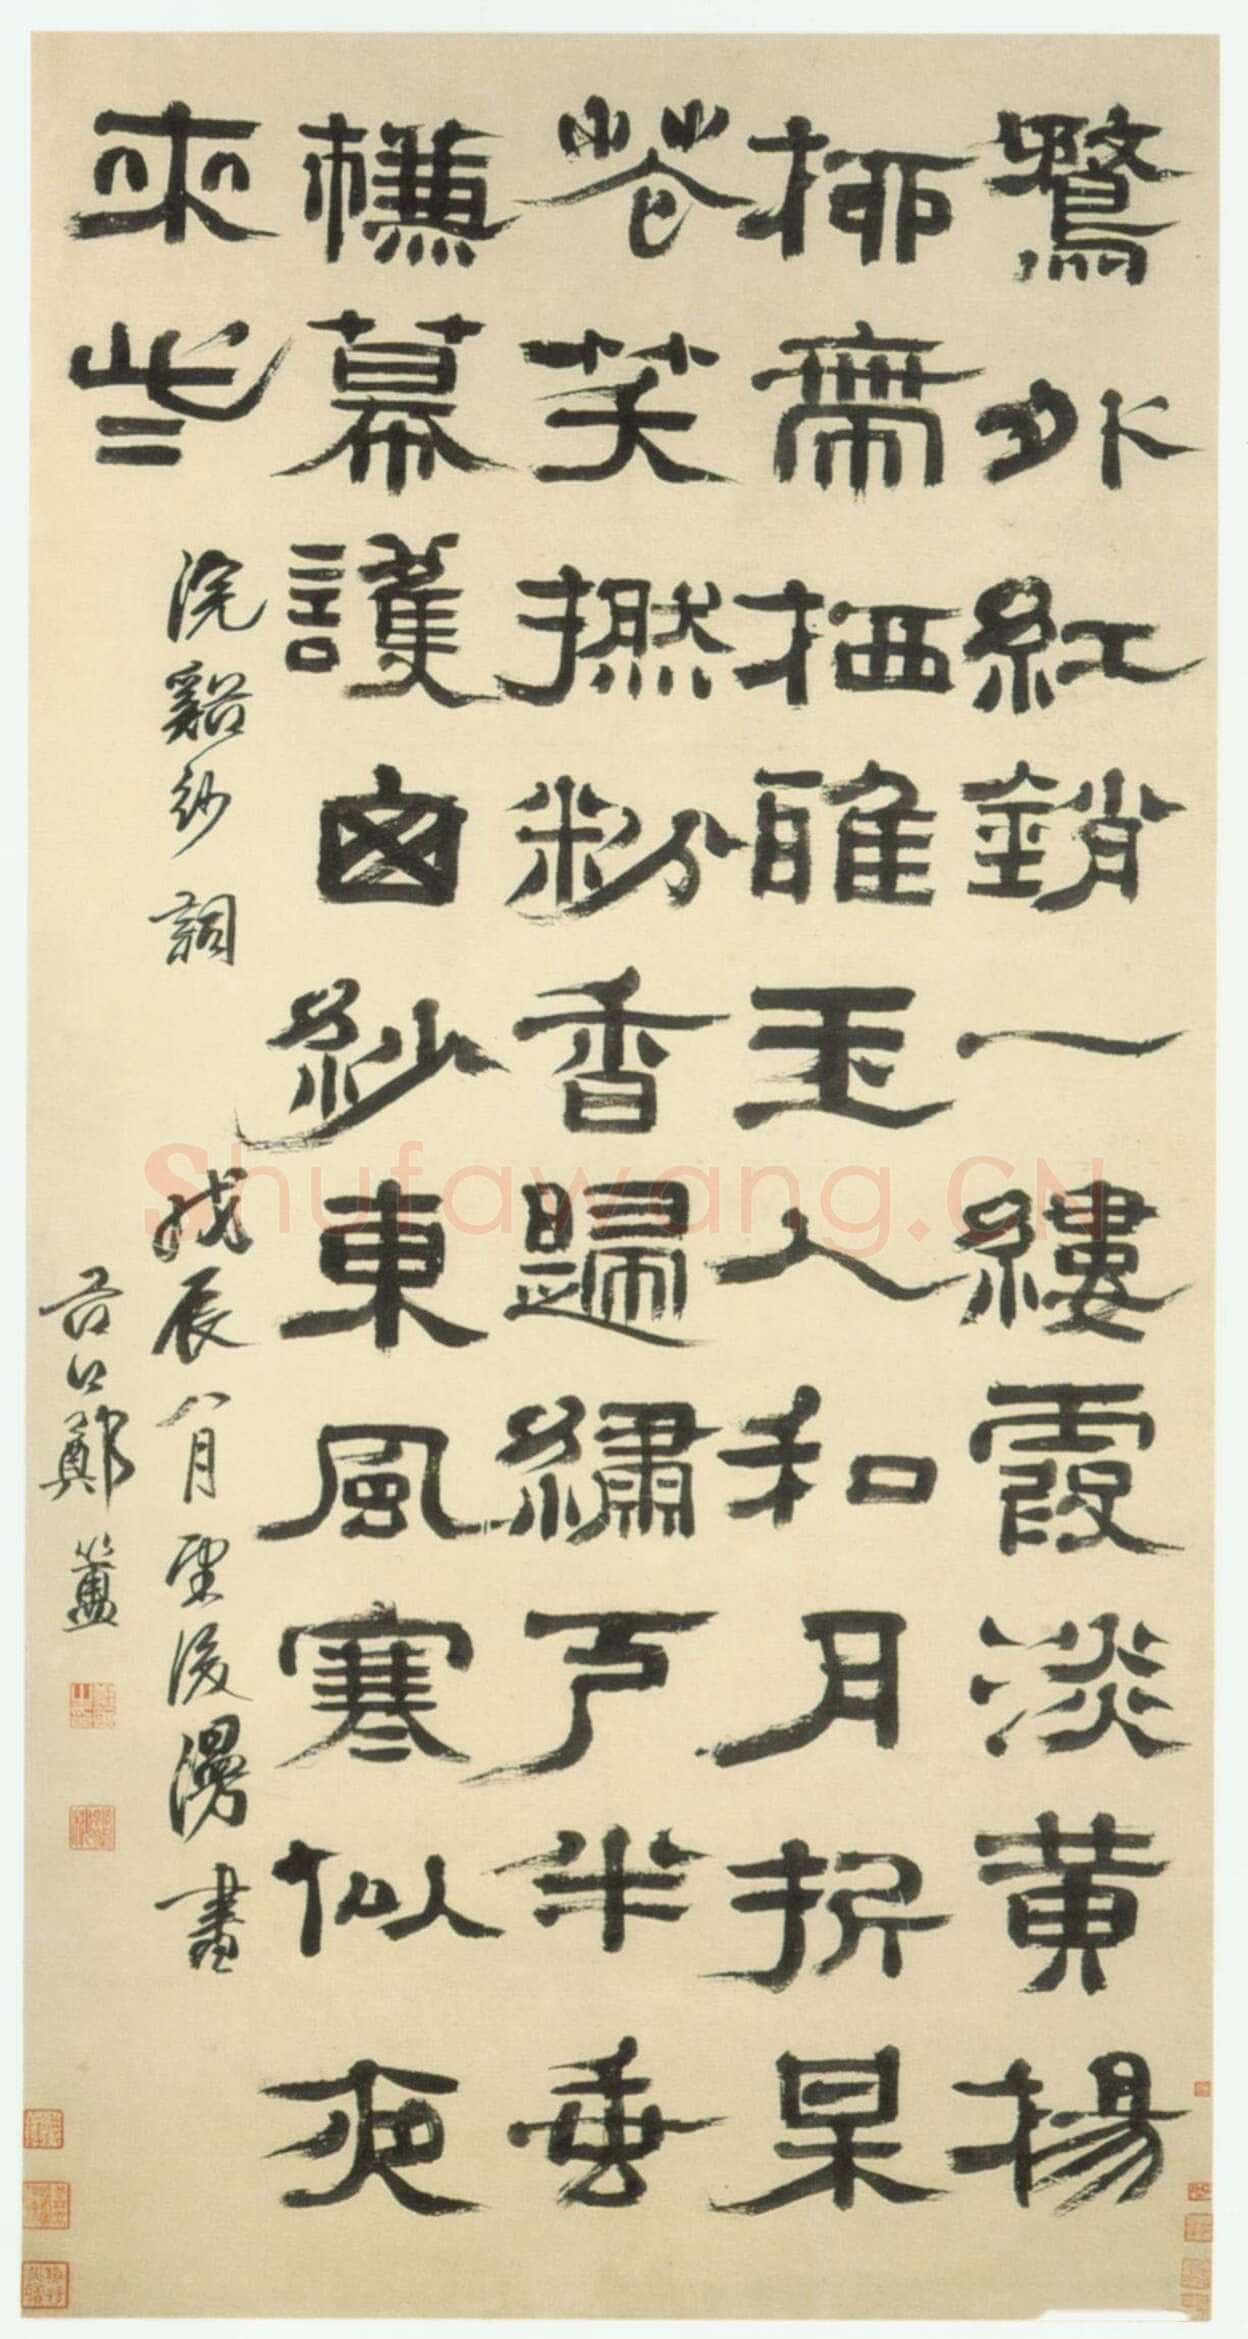 鶩外紅銷一縷霞淡黃楊
柳帶栖雅玉人和月折呆
花笑撚粉香歸繡戶半垂
槏幕護囱紗東風寒似夜
來些
浣谿紗詞 戊辰八月望後漫書
谷口鄭簠
Shufawang.CN